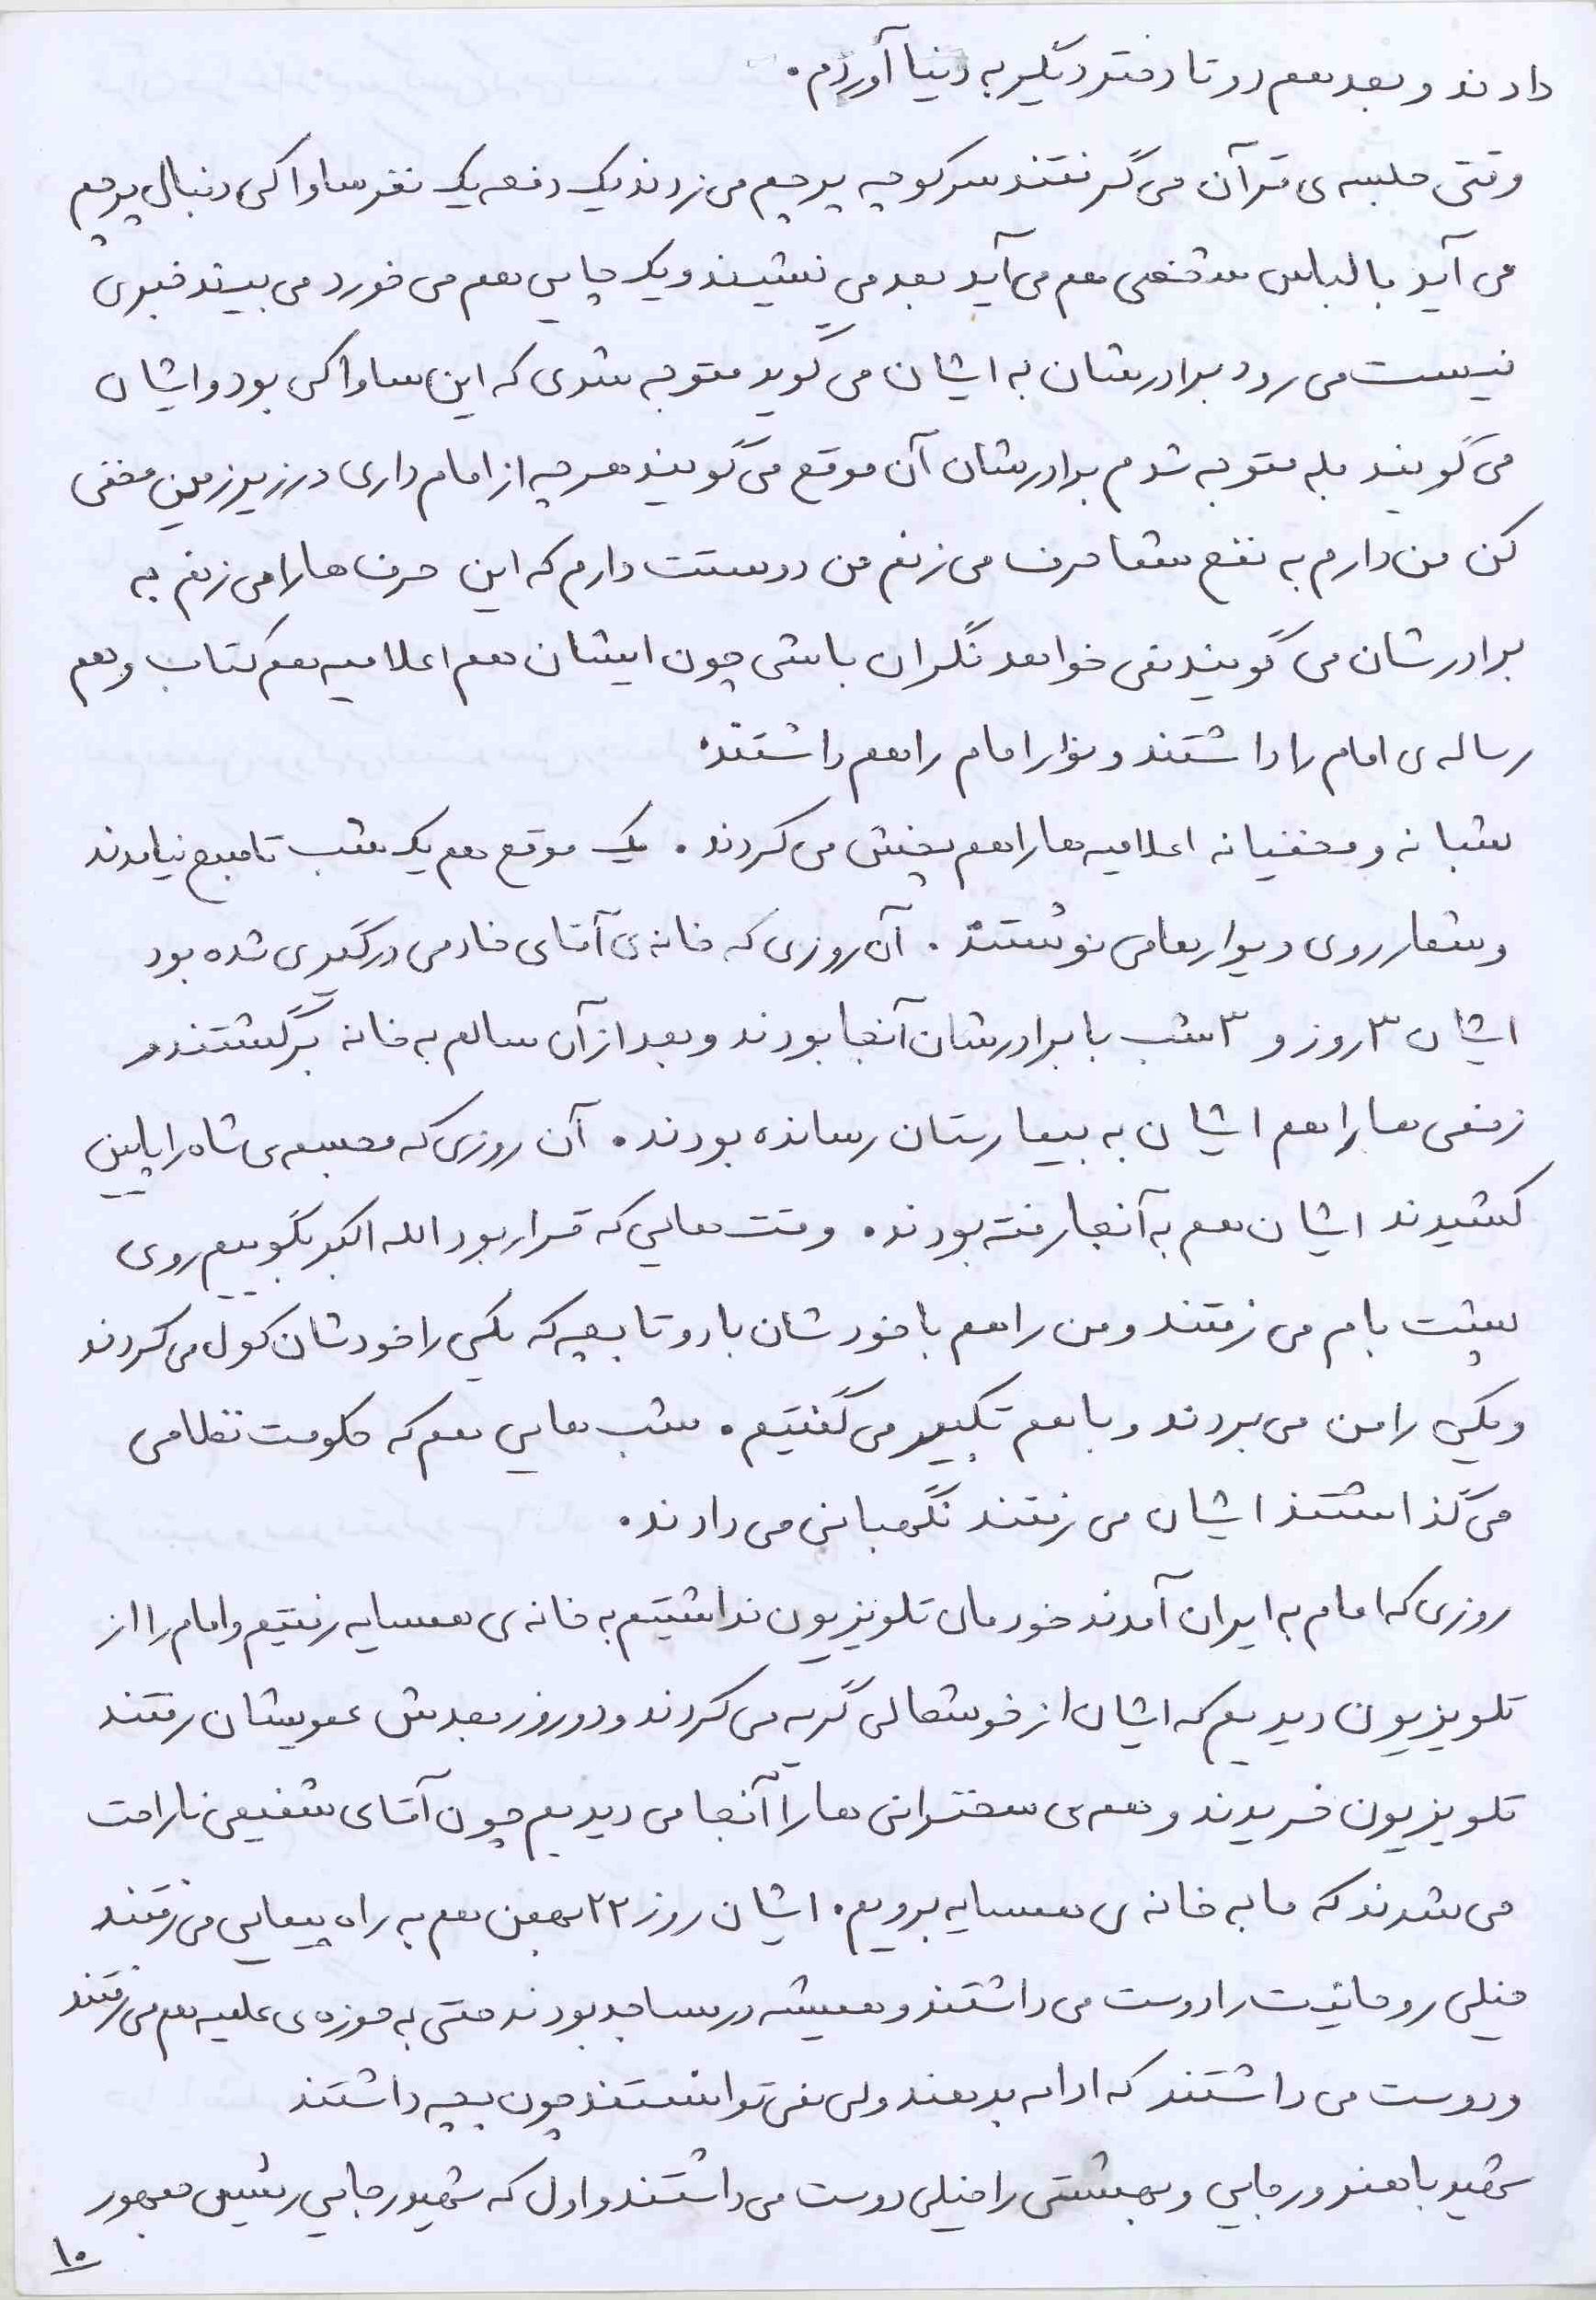 دادند و بعد هم دو تا دختر دیگر به دنیا آوردم.
وقتی جلسه ی قرآن می گرفتند سر کوچه پرچم می زدند یک دفعه یک نفر ساواکی دنبال پرچم
می آید با لباس شخصی هم می آید بعد می نشیند و یک چایی هم می خورد می بیند خبری
نیست می رود برادرشان به ایشان می گوید متوجه شدی که این ساواکی بود و ایشان
می گویند بله متوجه شدم برادرشان آن موقع می گویند هر چه از امام داری در زیرزمین مخفی
کن من دارم به نفع شما حرف می زنم من دوستت دارم که این حرف ها را می زنم به
برادرشان می گویند نمی خواهد نگران باشی چون ایشان هم اعلامیه هم کتاب و هم
رساله ی امام را داشتند و نوار امام را هم داشتند.
شبانه و مخفیانه اعلامیه ها را هم پخش می کردند. یک موقع هم یک شب تا صبح نیامدند
و شعار روی دیوارها می نوشتند. آن روزی که خانه ی آقای خادمی درگیری شده بود
ایشان ۳ روز و ۳ شب با برادرشان آنجا بودند و بعد از آن سالم به خانه برگشتند و
زخمی ها را هم ایشان به بیمارستان رسانده بودند. آن روزی که مجسمه ی شاه را پایین
کشیدند ایشان هم به آنجا رفته بودند. وقت هایی که قرار بود الله اکبر بگوییم روی
پشت بام می رفتند و من را هم با خودشان با دو تا بچه که یکی را خودشان کول می کردند
و یکی را من می بردند و با هم تکبیر می گفتیم. شب هایی هم که حکومت نظامی
می گذاشتند ایشان می رفتند نگهبانی می دادند.
روزی که امام به ایران آمدند خودمان تلویزیون نداشتیم به خانه ی همسایه رفتیم و امام را از
تلویزیون دیدیم که ایشان از خوشحالی گریه می کردند و دو روز بعدش عمویشان رفتند
تلویزیون خریدند و همه ی سخنرانی ها را آنجا می دیدیم چون آقای شفیعی ناراحت
می شدند که ما به خانه ی همسایه برویم. ایشان روز ۲۲ بهمن هم به راه پیمایی می رفتند
خیلی روحانیت را دوست می داشتند و همیشه در مساجد بودند حتی به حوزه ی علمیه هم می رفتند
و دوست می داشتند که ادامه بدهند ولی نمی توانستند چون بچه داشتند
شهید باهنر و رجایی و بهشتی را خیلی دوست می داشتند و اول که شهید رجایی رئیس جمهور
۱۰